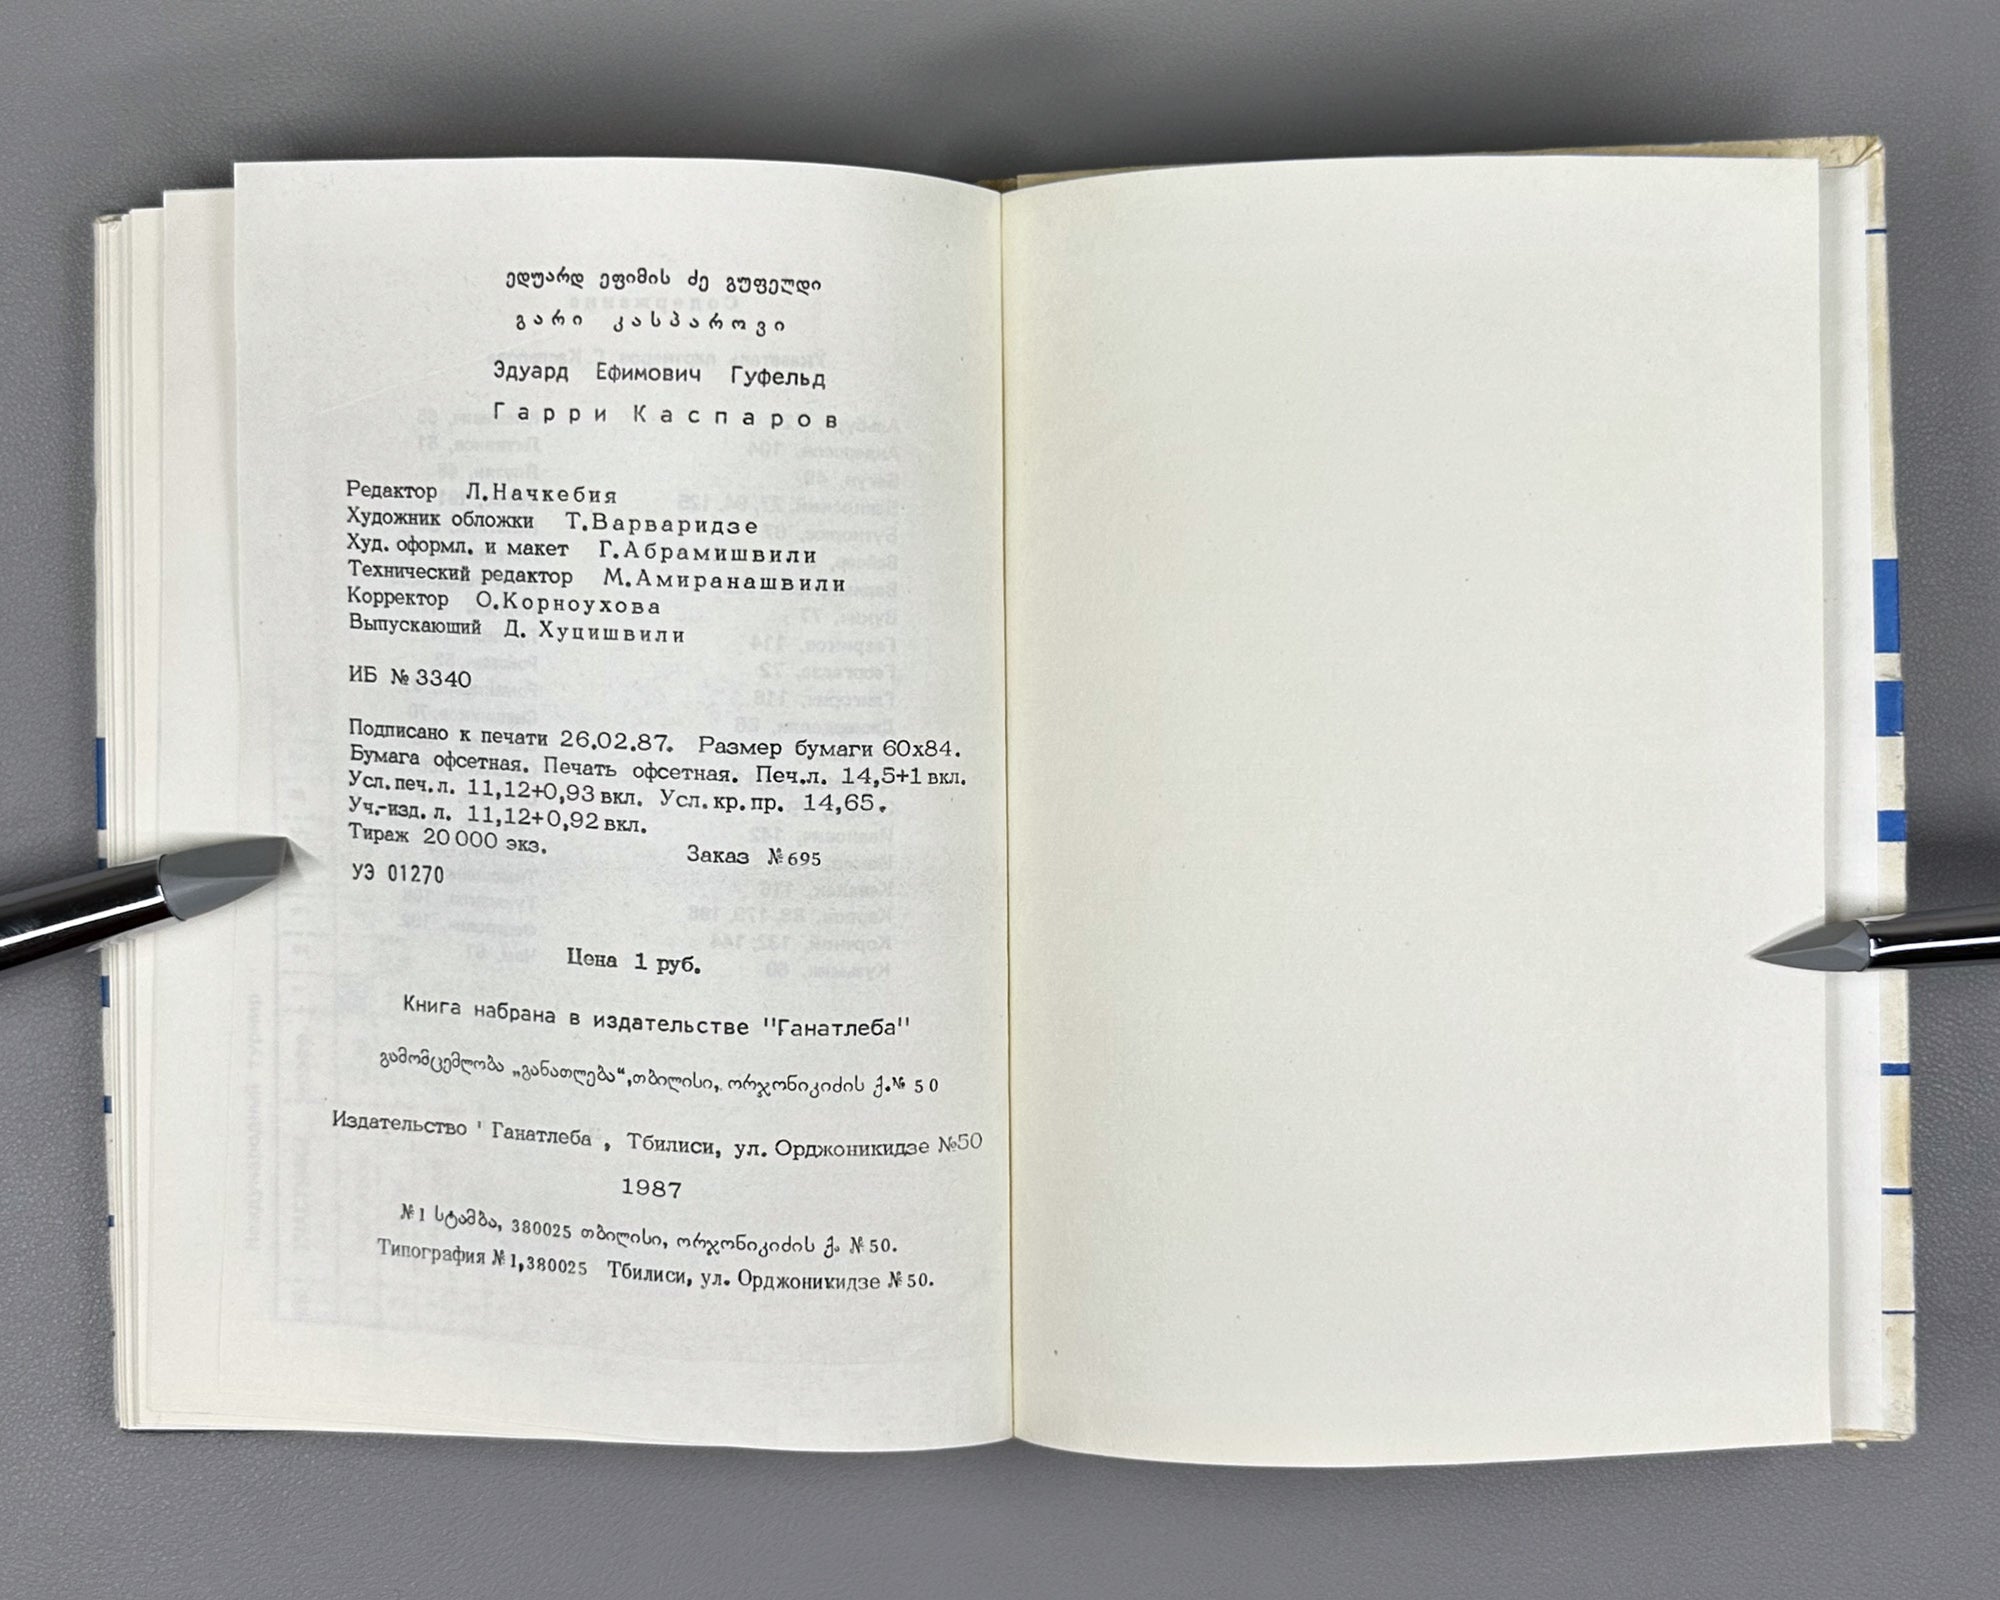 ედუარდ ეფიმის ძე გუფელდი
გარი კასპაროვი
Эдуард Ефимович Гуфельд
Гарри Каспаров
Редактор Л.Начкебия
Художник обложки Т.Варваридзе
Худ. оформл. и макет Г.Абрамишвили
Технический редактор М.Амиранашвили
Корректор О.Корноухова
Выпускающий Д. Хуцишвили
ИБ № 3340
Подписано к печати 26.02.87. Размер бумаги 60х84.
Бумага офсетная. Печать офсетная. Печ.л. 14,5+1 вкл.
Усл.печ.л. 11,12+0,93 вкл. Усл.кр.пр. 14,65.
Уч.-изд. л. 11,12+0,92 вкл.
Тираж 20 000 экз. Заказ № 695
УЭ 01270
Цена 1 руб.
Книга набрана в издательстве "Ганатлеба"
გამომცემლობა „განათლება“,თბილისი, ორჯონიკიძის ქ.№ 50
Издательство ' Ганатлеба , Тбилиси, ул. Орджоникидзе №50
1987
№1 სტამბა, 380025 თბილისი, ორჯონიკიძის ქ. № 50.
Типография № 1,380025 Тбилиси, ул. Орджоникидзе № 50.